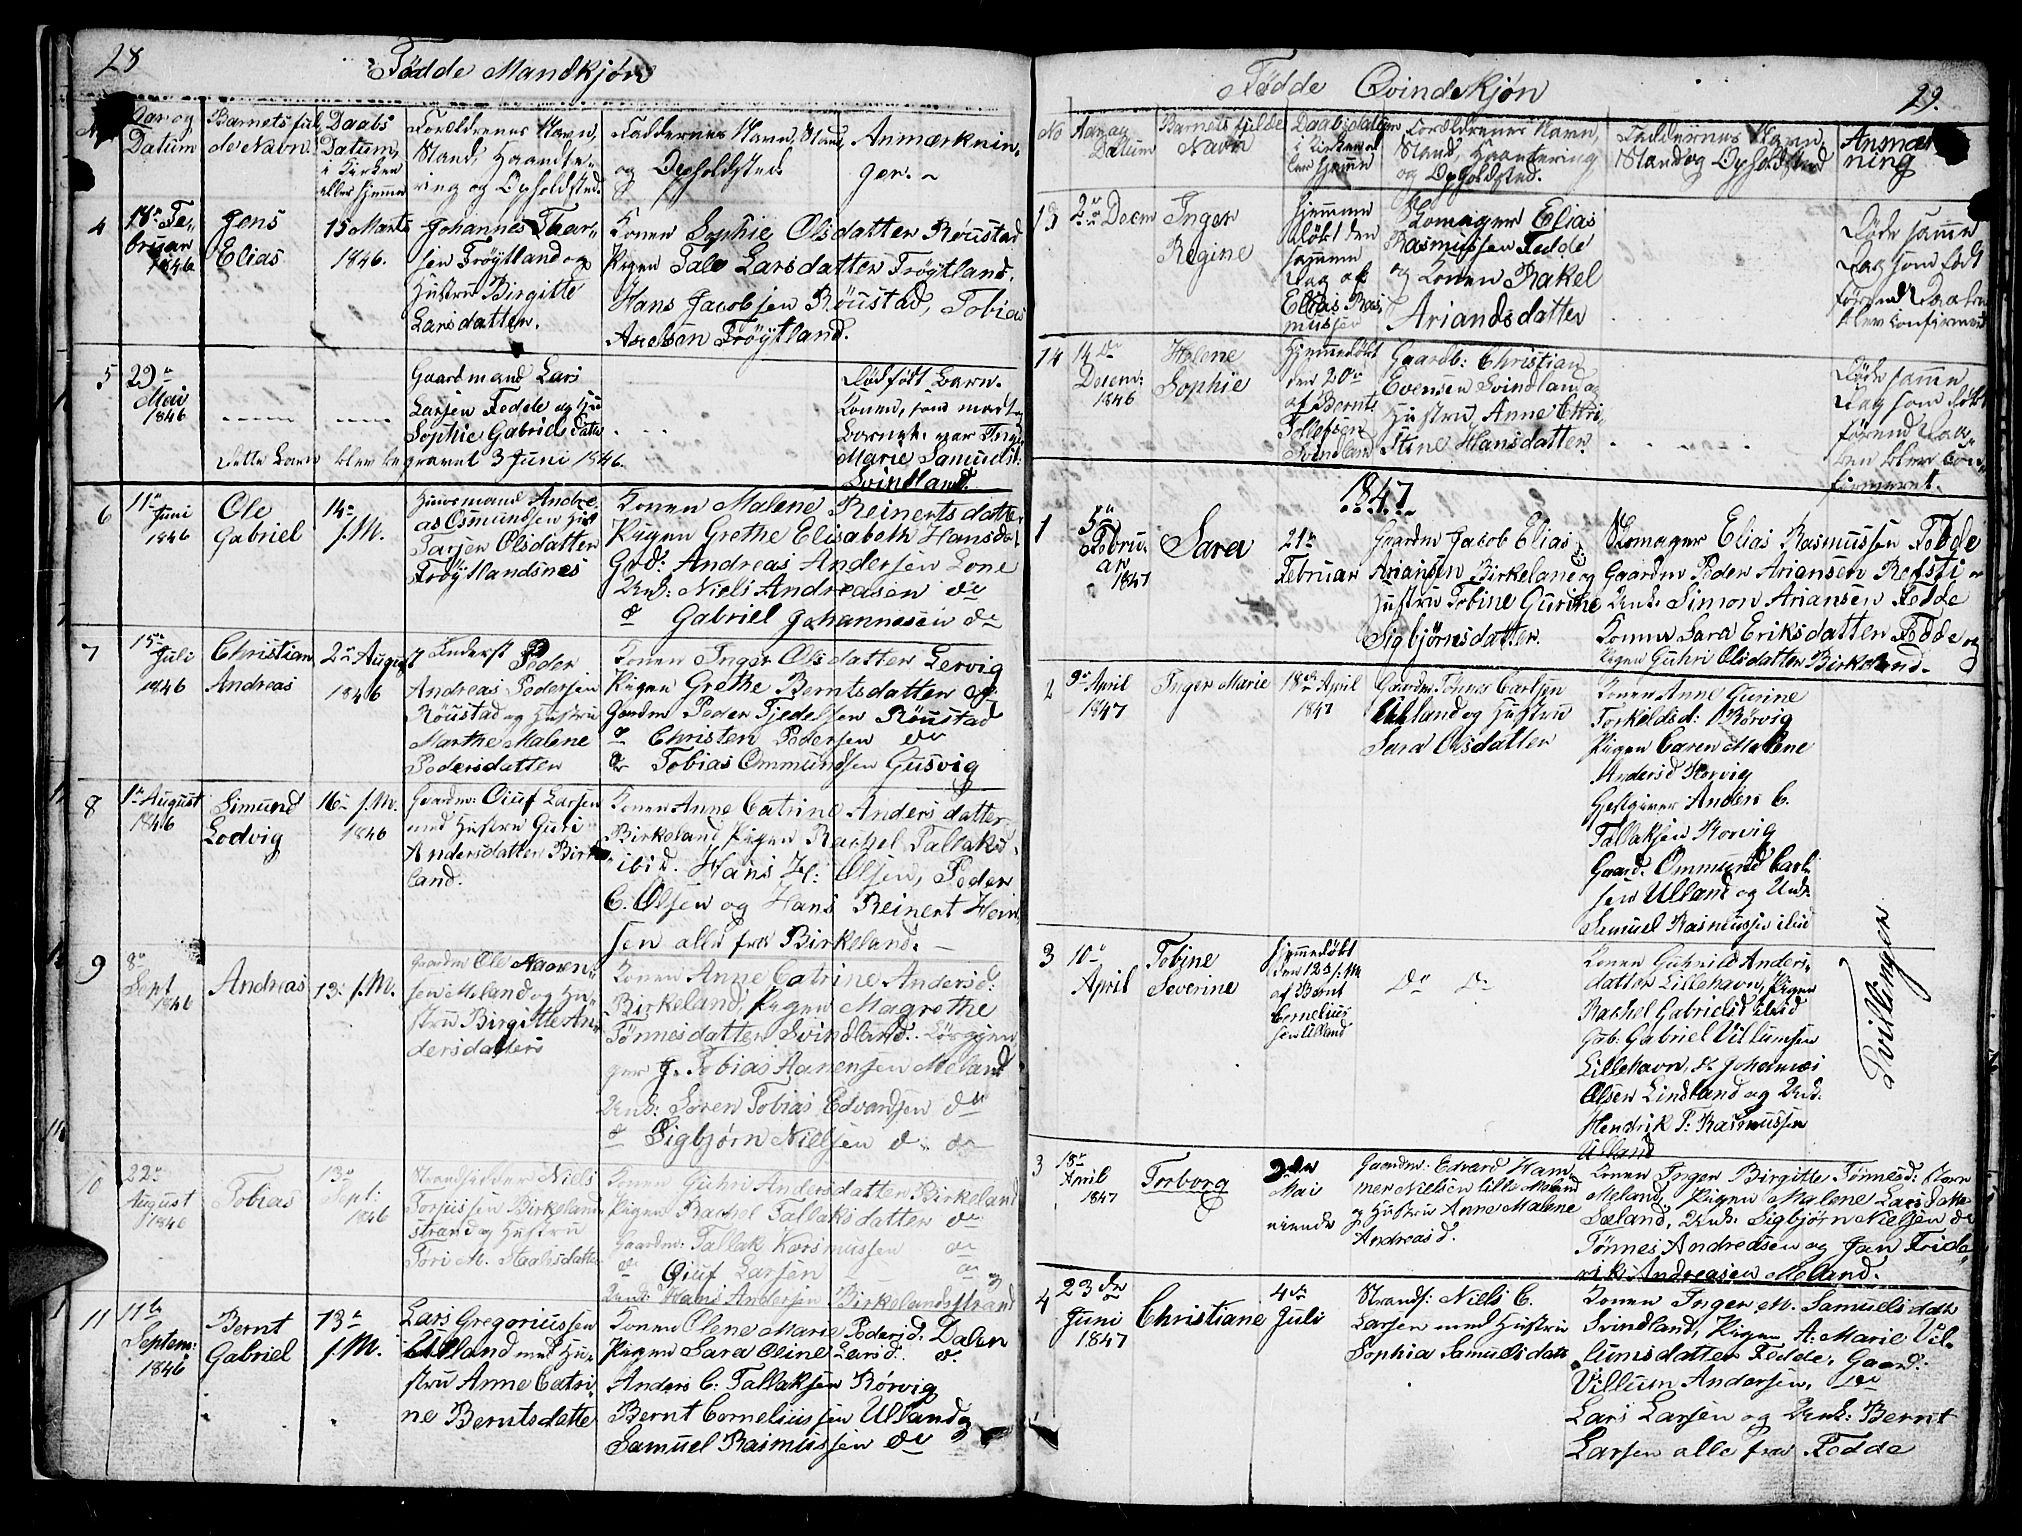 28
Födde Mandkjön
Aar og
Datum
Barnets ful
de Nabn
Daabs
Datum,
i Kirken
eller hjemme
Forældrenes Navn,
Stand, Haandte-
ring og Opholdsted.
Faddernes Navn, Stand
og Opholdsted.
Anmærknin-
ger.
4
18de Fe-
bruar
1846
Jens
Elias
15 Marts
1846.
Johannes Taar-
sen Fröytland og
Hustru Birgitte
Larsdatter.
Konen Sophie Olsdatter Röustad
Pigen Tale Larsdatter Fröytland,
Hans Jacobsen Röustad, Tobias
Axelsen Fröytland.
5
29de
Mai
1846
Gaardmand Lars
Larsen Fedde og Hu
Sophie Gabrielsdatter
Dette Barn blev begravet 3 Juni 1846.
Dødfødt Barn.
Konen, som modtog
Barnet, var Inge
Marie Samuelsd:
Svindland.
6
11te
Juni
1846
Ole
Gabriel
14de
s. M.
Huusmand Andre
as Osmundsen Hus
Tarjer Olsdatter
Fröytlandsnes
Konen Malene Reinertsdatter
Pigen Grethe Elisabeth Hansdat
Grd: Andreas Andersen Lone
Unk: Niels Andreasen do
do Gabriel Johannesen do
7
15de
Juli
1846
Christian
Andreas
2de August
1846
Inderst Peder
Andreas Pedersen
Röustad og Hustru
Marthe Malene
Pedersdatter
Konen Inger Olsdatter Lervig
Pigen Grethe Berntsdatter do
Gardm Peder Tjedelsen Röustad
do Christen Pedersen do
do Tobias Ommundsen Gusvig
8
1de August
1846
Simund
Lodvig
16de s. M.
1846
Gaardm: Oiuf Larsen
med Hustru Guri
Andersdatter Birke
land.
Konen Anne Catrine Andersdatter
Birkeland, Pigen Rachel Tallaksd.
ibid. Hans H: Olsen, Peder
C. Olsen og Hans Reinert Han
sen alle fra Birkeland.
9
8de
Sept
1846
Andreas
13de s. M.
Gaardm Ole Aanen-
sen Meland og Hu-
stru Birgitte An-
dersdatters
Konen Anne Catrine Andersd:
Birkeland, Pigen Magrethe
Tönnesdatter Svindland.
ger J. Tobias Aanensen Meland
Unk: Søren Tobias Edvardsen do
do Sigbjørn Nielsen do do
10
22de
August
1846
Tobias
13de
Sept:
1846
Strandsidder Niels
Torjussen Birkeland
strand og Hustru
Tori M. Staalesdatter
Konen Guhri Andersdatter Birkeland
Pigen Rachel Tallaksdatter do
Gaardm: Tallak Rasmussen do
do Oiuf Larsen do
Unk: Hans Andersen Birkelandsstrand
11
11te
Septem:
1846
Bernt
Gabriel
13de
s. M.
Lars Gregoriussen
Ulland med Hu-
stru Anne Catri-
ne Berntsdatte
Konen Olene Marie Pedersd. Dalen
Pigen Sara Oline Larsd. do
Anders C: Tallaksen Rörvig
Bernt Corneliussen Ulland og
Samuel Rasmussen do
Födde Qvindekjön
29.
No
Aar og
Datum
Barnets fulde
Navn
Daabsdatum
i Kirken el
ler hjemme
Forældrenes Navn,
Stand, Haantering
og Opholdsted.
Faddernes Navn,
Stand og Opholdsted
Anmær
ning
13
2de Decem
Inger
Regine
Hjemme
døbt den
samme
Dag af
Elias Ras
mussen
Skomager Elias
Rasmussen Fedde
og Konen Rakel
Ariandsdatter
Døde samme
Dag som født
førend Daaben
blev confirmeret
14
14de
Decem:
1846
Helene
Sophie
Hjemmedøbt
den 20de
af Bernt
Tollefsen
Svindland
Gaardb: Christian
Evensen Svindland og
Hustru Anne Chri
stine Hansdatter.
Døde samme
Dag som døbt
førend Daa-
ben blev con-
firmeret.
1847.
1
5te
Febru-
ar
1847
Sara
21de
Februar
Gaardm Jacob Elias
Ariansen Birkeland og
Hustru Tobine Gurine
Sigbjörnsdatter.
Skomager Elias Rasmussen Fedde
Gaardm Peder Ariansen Refsti
Unk. Simon Ariansen Fedde
Konen Sara Eriksdatter Fedde og
Pigen Guhri Olsdatter Birkeland.
2
9de April
1847
Inger Marie
18de April
1847
Gaardm Tønnes Carlsen
Ulland og Hustru
Sara Olsdatter
Konen Anne Gurine
Torkildsd: Rörvig
Pigen Caren Malene
Andersd Rörvig
Gjestgiver Anders C.
Tallaksen Rorvig
Gaard. Ommund Carl-
sen Ulland og Unk.
Samuel Rasmussen ibid
3
10de
April
Tobine
Severine
Hjemmedøbt
den 12 s. M
af Bernt
Cornelius
sen Ulland
Do Do
Konen Guhrild Anders-
datter Lillehavn, Pigen
Rachel Gabrielsd ibid
Grb: Gabriel Villumsen
Lillehavn, do Johannes
Olsen Lindland og Unk.
Hendrik P. Rasmussen
Ulland
Tvillinger
3
18de
April
1847
Torborg
2den
Mai
Gaardm: Edvard Ham
mer Nielsen lille Meland
og Hustru Anne Malene
Andreasd.
Konen Inger Birgitte Tönnesd:
Meland, Pigen Malene Larsd
Unk. Sigbjörn Nielsen do
Tönnes Andreasen og Jan Fride-
rik Andreasen Meland.
4
23de
Juni
1847
Christiane
4de
Juli
Strands: Niels C.
Larsen med Hustru
Sophia Samuelsdatt
Konen Inger M. Samuelsdatt
Svindland, Pigen A. Marie Vil-
lumsdatter Fedde, Gaard:
Villum Andersen, do
Lars Larsen og Unk: Bernt
Larsen alle fra Fedde